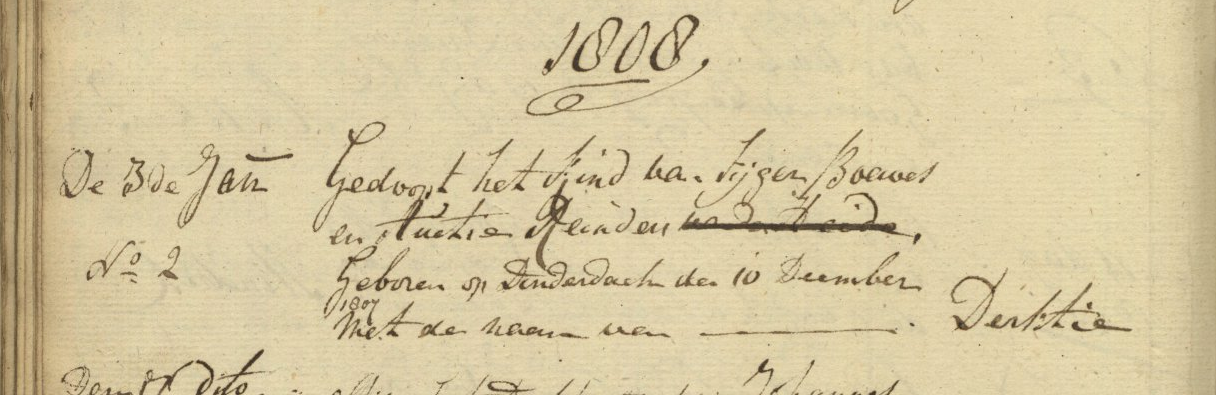 1808.
De 3de Jan Gedoopt het Kind va. Tijger Boewes
en Auktie Reinders van der Heide,
No 2
Geboren op Donderdach den 10 December
1807
Met de naam van — . Derktie
Dem 17 dito Johannes